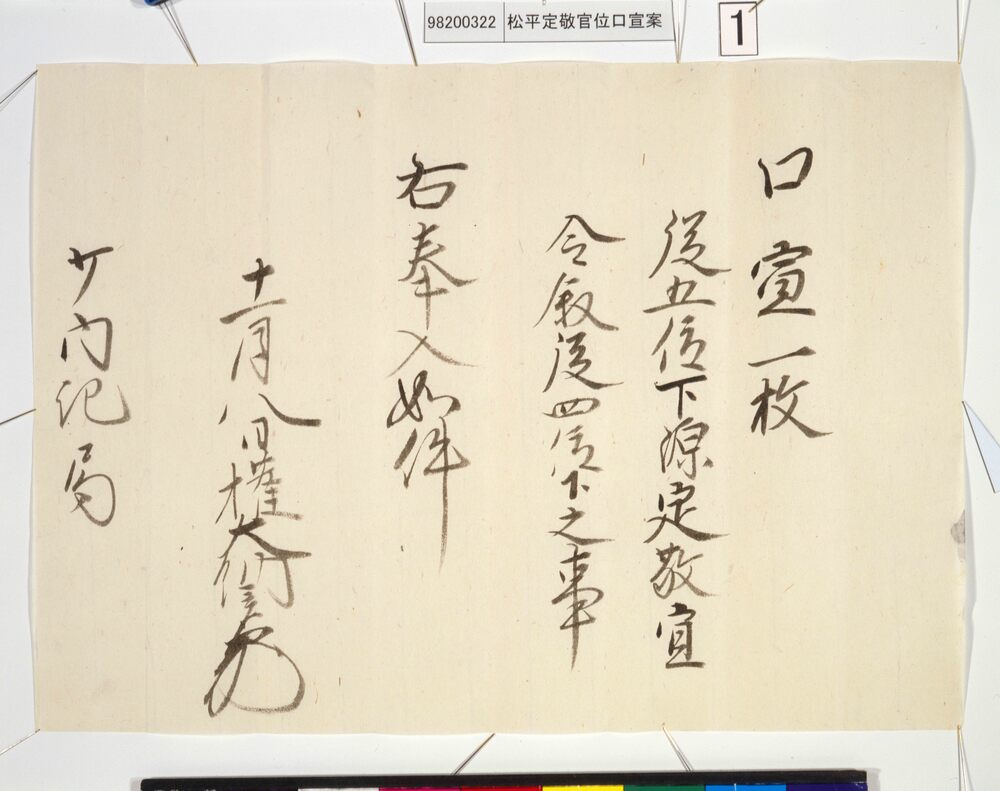 98200322 松平定敬官位口宣案
1
口宣一枚
従五位下源定敬宜
令叙従四位下之事
右奉入如件
十一月八日権大納言
少内記局